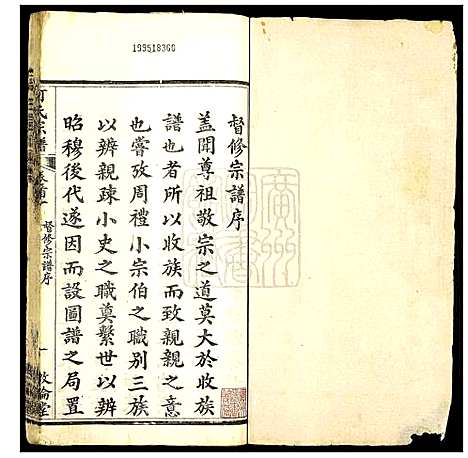 199518360
督修宗譜序
蓋聞尊祖敬宗之道莫大於收族
譜也者所以收族而致親親之意
也嘗攷周禮小宗伯之職別三族
以辨親疎小史之職奠繫世以辨
昭穆後代遂因而設圖譜之局置
氏宗譜
卷首
督修宗譜序
一
敦倫堂